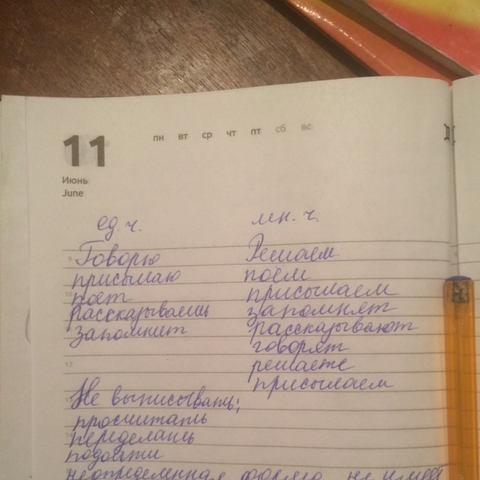 11
пн вт ср чт пт сб вс
Июнь
June
ед. ч. мн. ч.
Говорю Решаем
присылаю поём
поёт присылаем
Рассказываешь запомнят
Запомнит рассказывают
говорят
решаете
присылаем
Не выписывать:
просчитать
переделать
подойти
неопределенная форма, не имеет